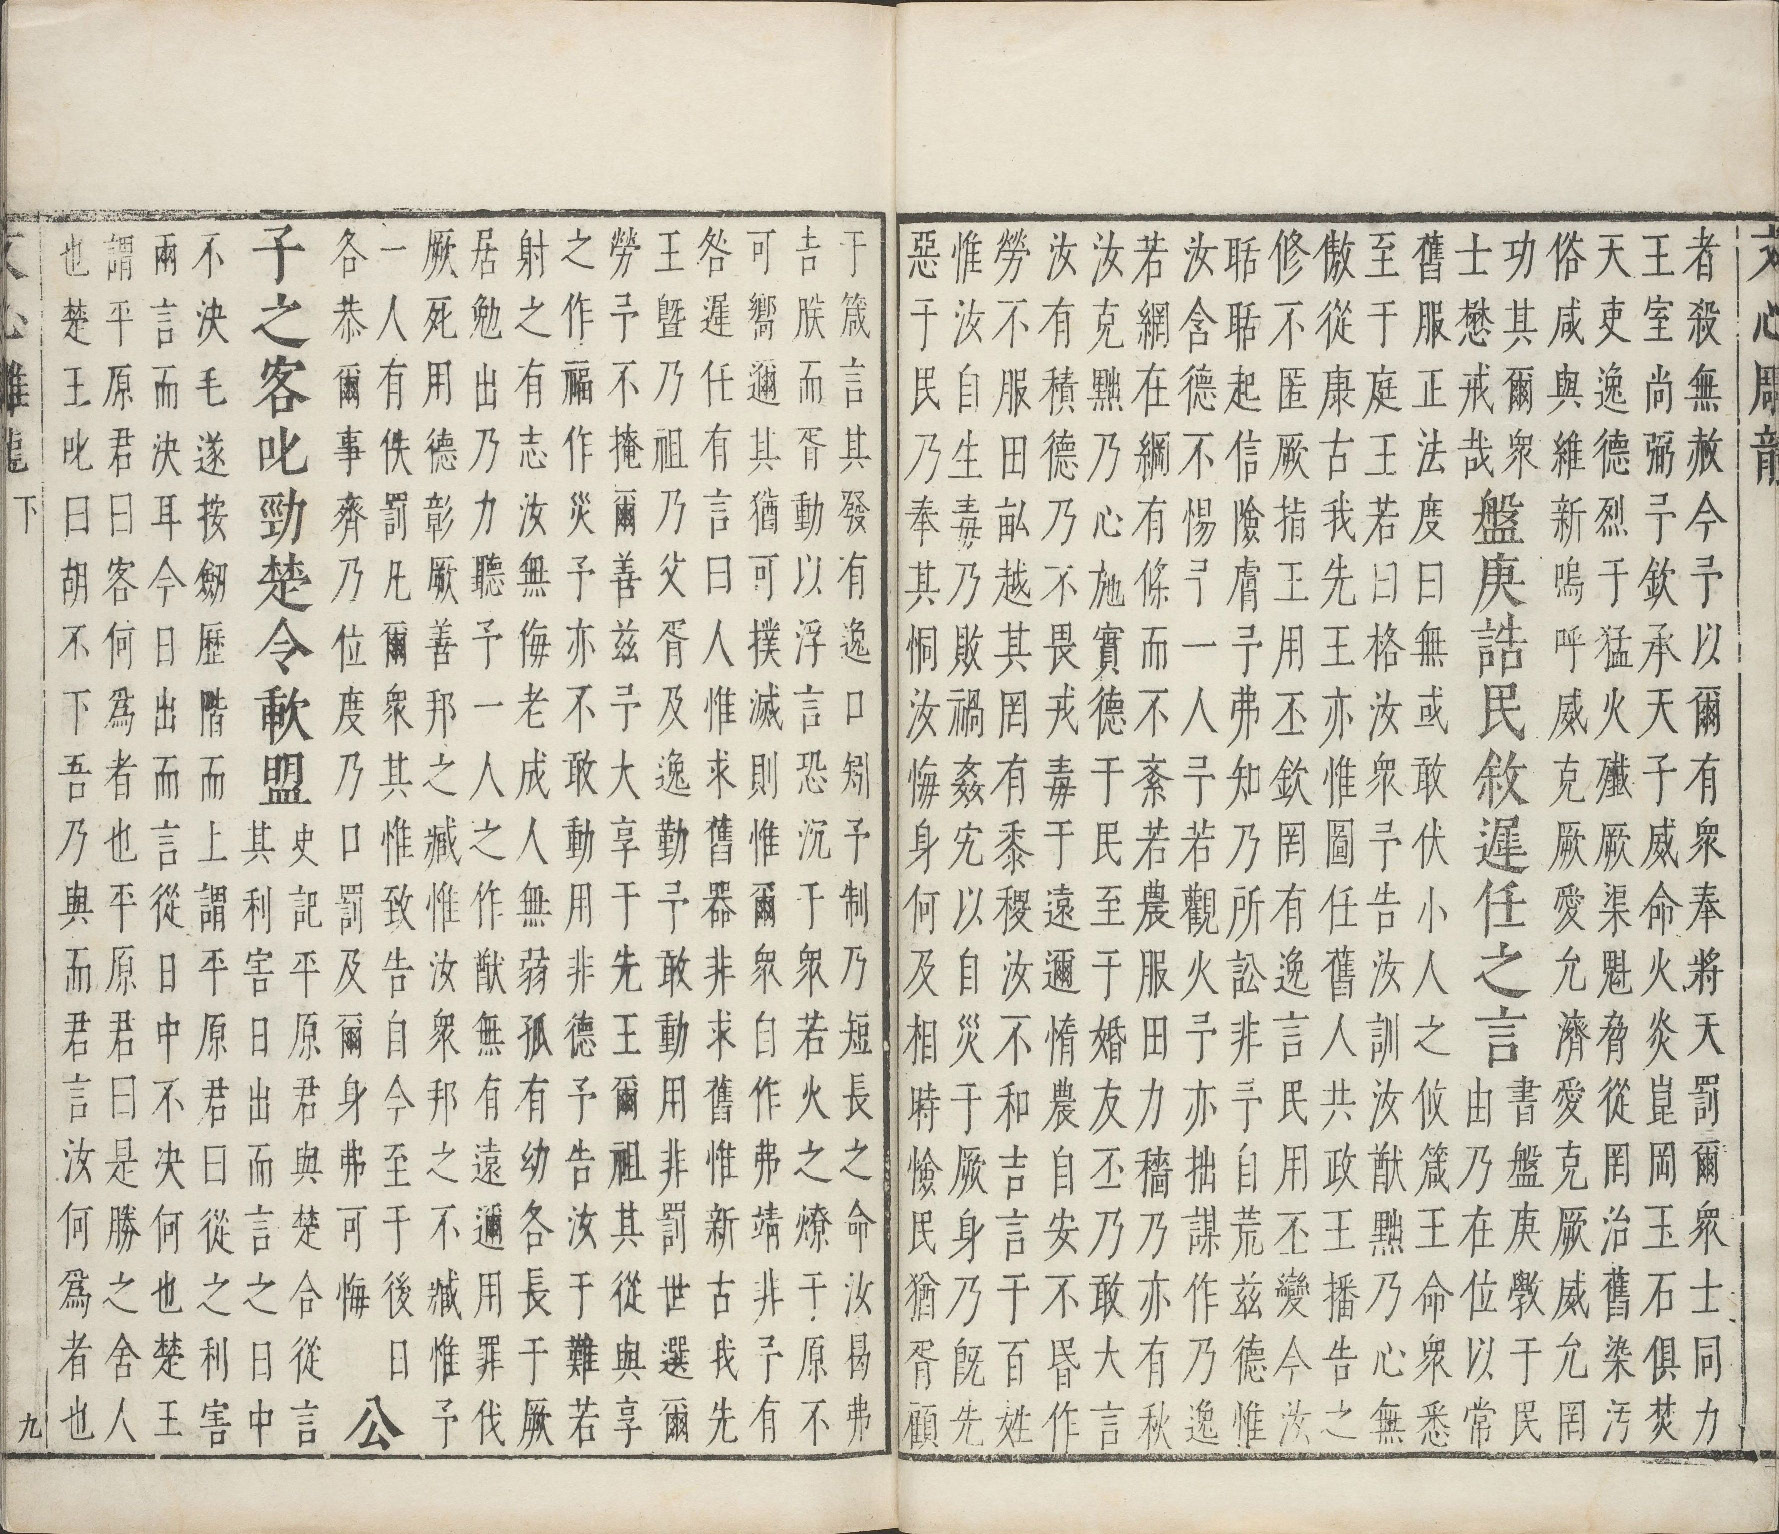 文心雕龍
者殺無赦今予以爾有衆奉將天罰爾衆士同力
王室尚弼予欽承天子威命火炎崑岡玉石俱焚
天吏逸德烈于猛火殲厥渠魁脅從罔治舊染汚
俗咸與維新嗚呼威克厥愛允濟愛克厥威允罔
功其爾衆
士懋戒哉
盤庚誥民敘遲任之言
書盤庚斆于民
由乃在位以常
舊服正法度曰無或敢伏小人之攸箴王命衆悉
至于庭王若曰格汝衆予告汝訓汝猷黜乃心無
傲從康古我先王亦惟圖任舊人共政王播告之
修不匿厥指王用丕欽罔有逸言民用丕變今汝
聒聒起信險膚予弗知乃所訟非予自荒茲德惟
汝含德不惕予一人予若觀火予亦拙謀作乃逸
若網在綱有條而不紊若農服田力穡乃亦有秋
汝克黜乃心施實德于民至于婚友丕乃敢大言
汝有積德乃不畏戎毒于遠邇惰農自安不昬作
勞不服田畝越其罔有黍稷汝不和吉言于百姓
惟汝自生毒乃敗禍姦宄以自災于厥身乃既先
惡于民乃奉其恫汝悔身何及相時憸民猶胥顧
于箴言其發有逸口矧予制乃短長之命汝曷弗
告朕而胥動以浮言恐沉于衆若火之燎于原不
可嚮邇其猶可撲滅則惟爾衆自作弗靖非予有
咎遲任有言曰人惟求舊器非求舊惟新古我先
王曁乃祖乃父胥及逸勤予敢動用非罰世選爾
勞予不掩爾善茲予大享于先王爾祖其從與享
之作福作災予亦不敢動用非德予告汝于難若
射之有志汝無侮老成人無弱孤有幼各長于厥
居勉出乃力聽予一人之作猷無有遠邇用罪伐
厥死用德彰厥善邦之臧惟汝衆邦之不臧惟予
一人有佚罰凡爾衆其惟致告自今至于後日
各恭爾事齊乃位度乃口罰及爾身弗可悔
公
子之客叱勁楚令歃盟
史記平原君與楚合從言
其利害日出而言之日中
不決毛遂按劒歷階而上謂平原君曰從之利害
兩言而決耳今日出而言從日中不決何也楚王
謂平原君曰客何爲者也平原君曰是勝之舍人
也楚王叱曰胡不下吾乃與而君言汝何爲者也
文心雕龍 下 九